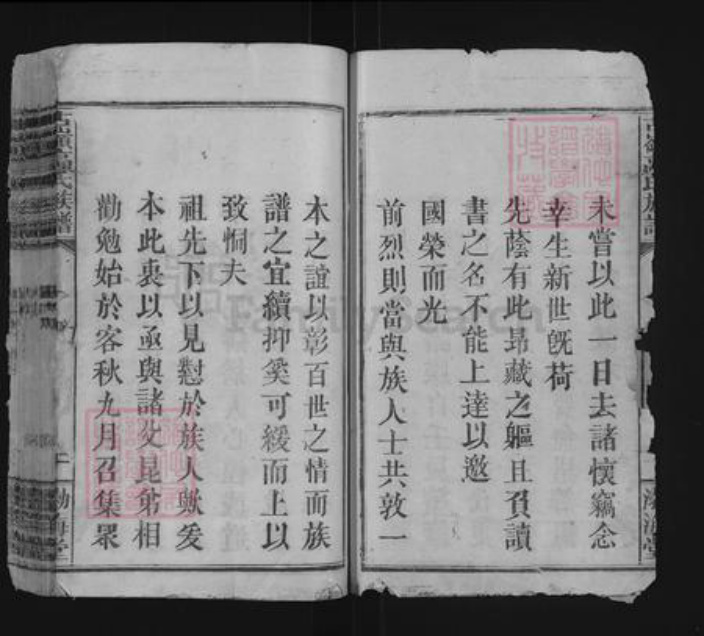 未嘗以此一日去諸懷竊念
幸生新世旣荷
先蔭有此昻藏之軀且負讀
書之名不能上達以邀
國榮而光
前烈則當與族人士共敦一
木之誼以彰百世之情而族
譜之宜續抑奚可緩而上以
致恫夫
祖先下以見懟於族人歟爰
本此衷以亟與諸父昆弟相
勸勉始於客秋九月召集眾
氏族譜
渤海堂
FamilySearch